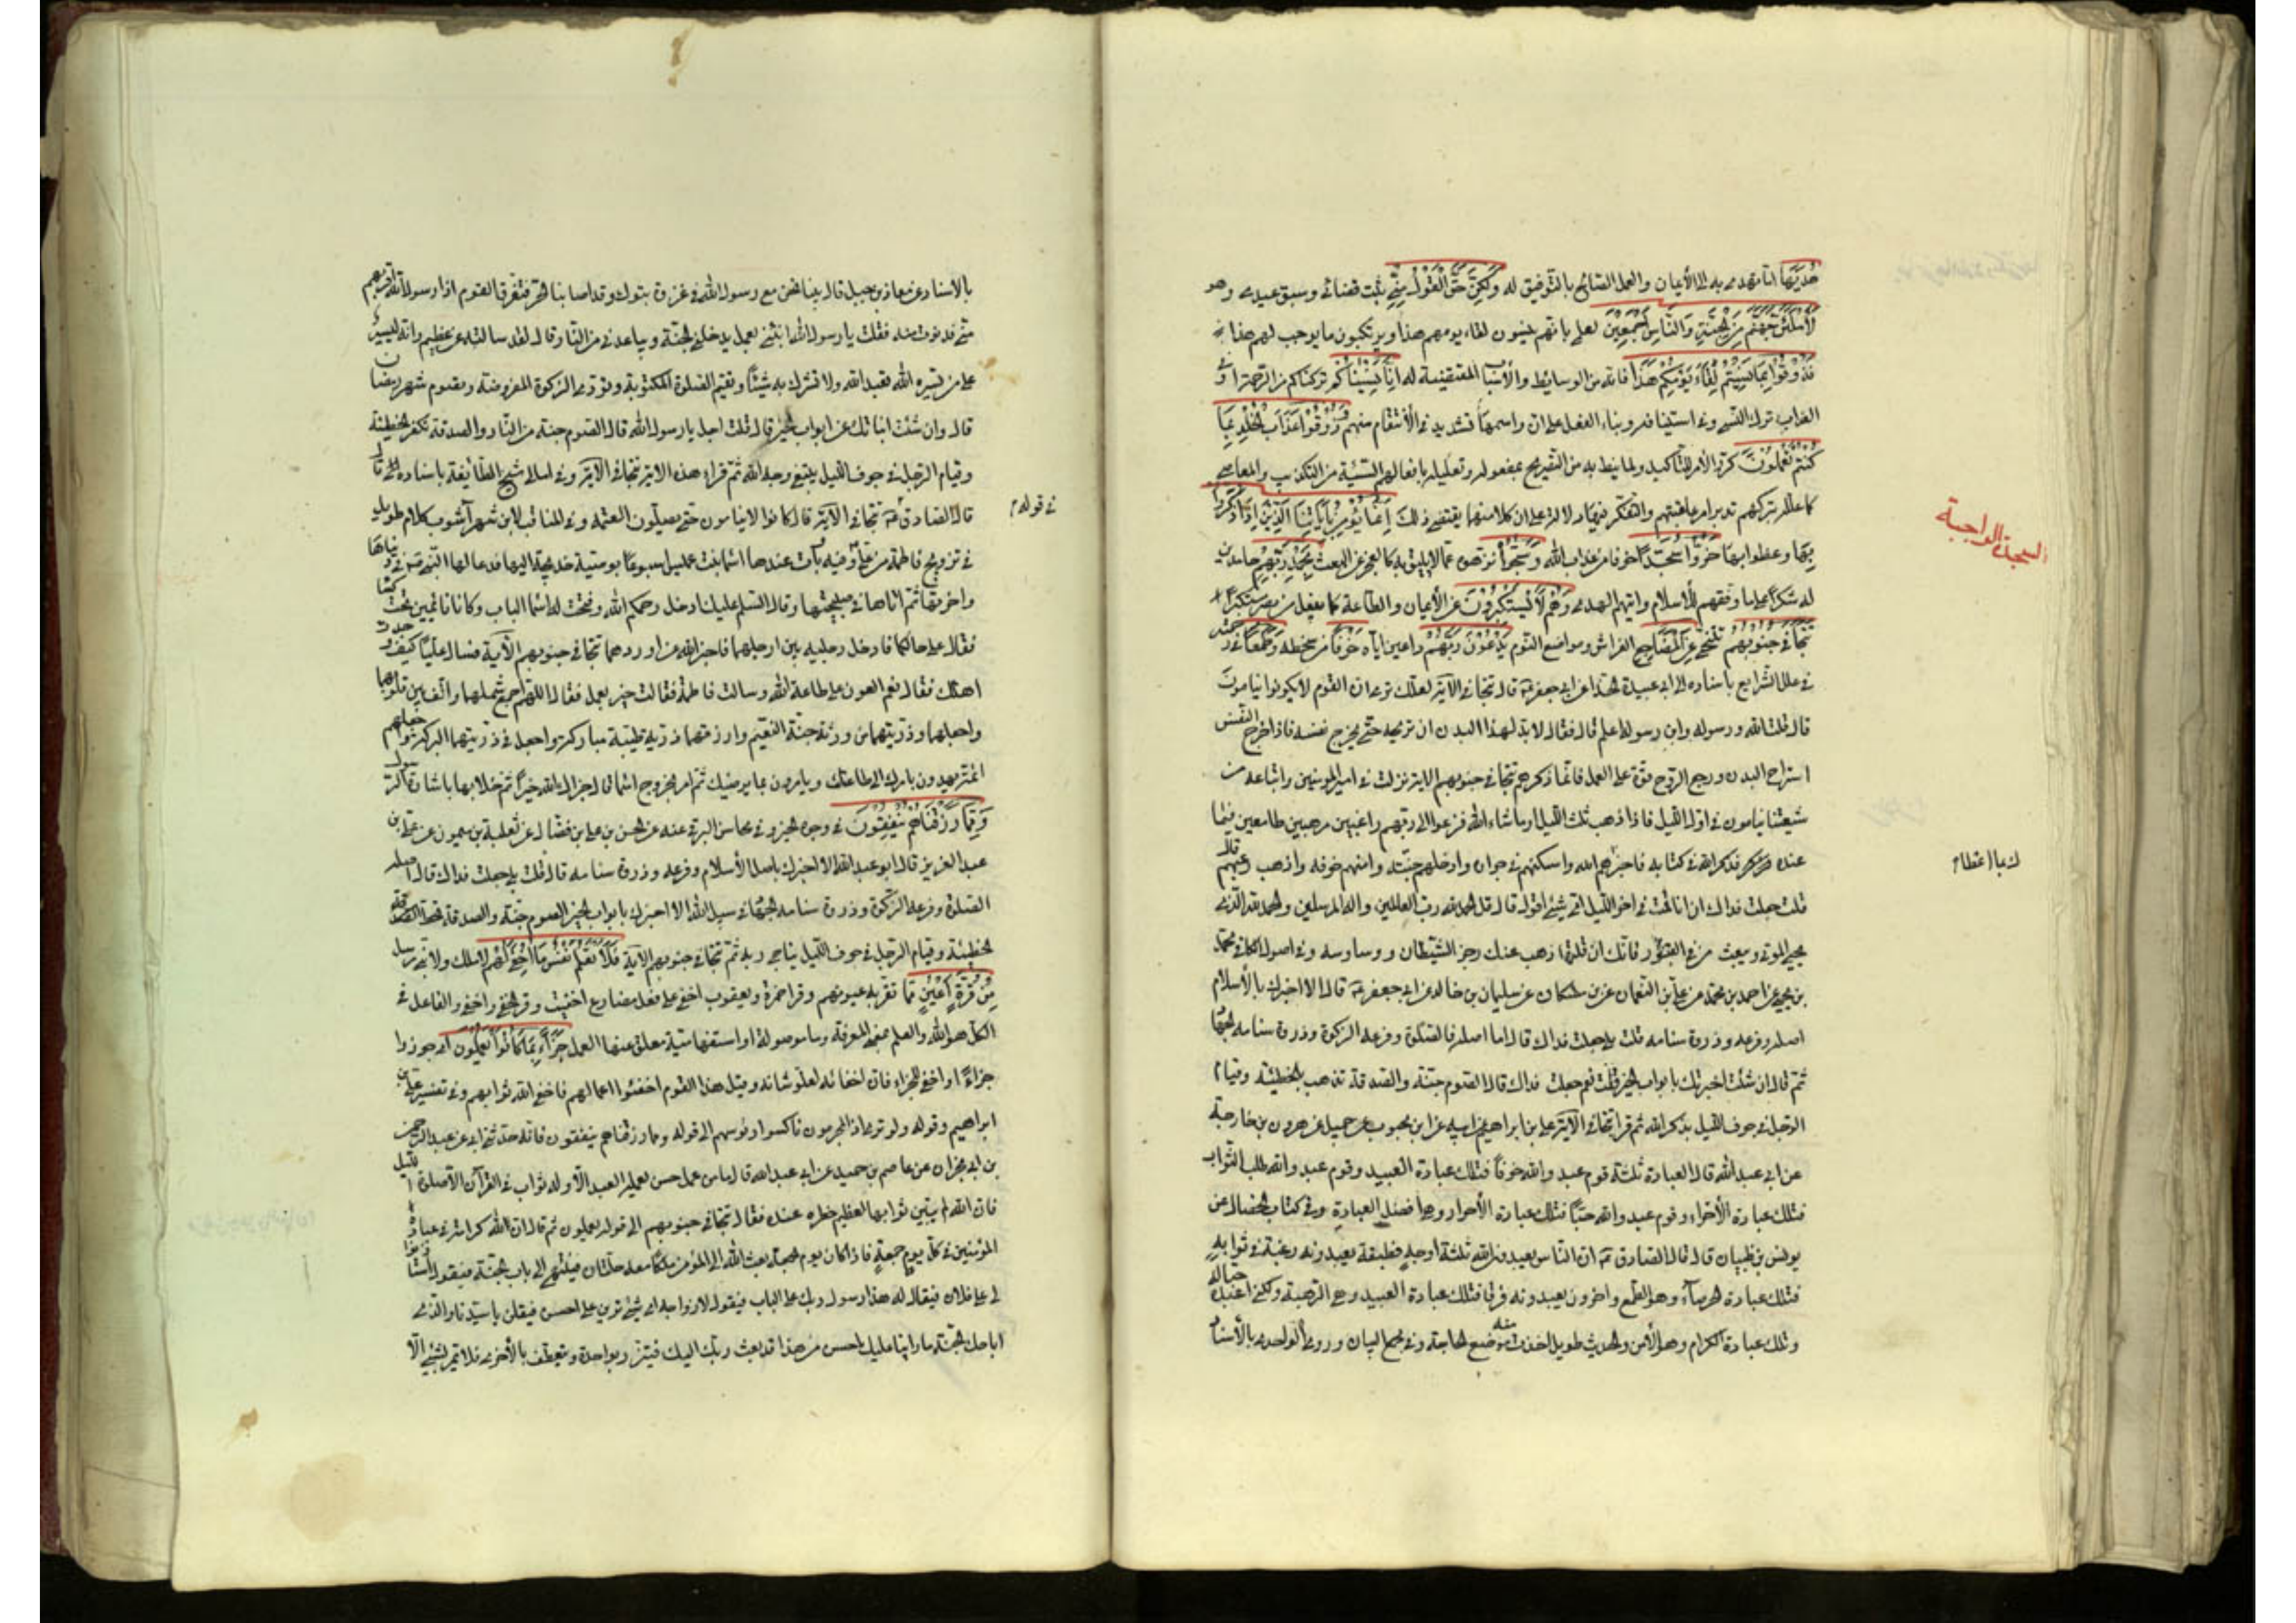 هُدَيٰهَا اى ما تهتدى به الى الأيمان والعمل الصّالح بالتّوفيق له وَلَكِنْ حَقَّ الْقَوْلُ مِنِّي ثبت قضائى وسبق عيدى وهو
لَأَمْلَئَنَّ جَهَنَّمَ مِنَ الْجِنَّةِ وَالنَّاسِ أَجْمَعِينَ لعلمى بانهم ينسون لقاء يومهم هذا ويرتكبون ما يوجب لهم هذا
فَذُوقُوا بِمَا نَسِيتُمْ لِقَاءَ يَوْمِكُمْ هَذَا فانه من الوسايط والأسباب المقتضية له إِنَّا نَسِينَاكُمْ تركناكم من الرّحمة او فى
العذاب ترك المنسى وفى استينافه وبناء الفعل على انّ واسمها تشديد فى الأنتقام منهم وَذُوقُوا عَذَابَ الْخُلْدِ بِمَا
كُنْتُمْ تَعْمَلُونَ كرّر الأمر للتّأكيد ولما نيط به من التّصريح بمفعوله وتعليله بافعالهم السّيئة من التكذيب والمعاصى
كما علّله بتركهم تدبر امر عاقبتهم والتفكّر فيها دلالة على ان كلا منهما يقتضى ذلك إِنَّمَا يُؤْمِنُ بِآيَاتِنَا الَّذِينَ إِذَا ذُكِّرُوا
بِهَا وعظوا بها خَرُّوا سُجَّدًا خوفا من عذاب الله وَسَبَّحُوا نزّهوه عمّا لا يليق به كالعجز عن البعث بِحَمْدِ رَبِّهِمْ حامدين
له شكرًا على ما وفّقهم للأسلام واتيهم الهدى وَهُمْ لَا يَسْتَكْبِرُونَ عن الأيمان والطّاعة كما يفعل من يصرّ مستكبرًا
تَتَجَافَى جُنُوبُهُمْ تتنحّى عَنِ الْمَضَاجِعِ الفراش ومواضع النّوم يَدْعُونَ رَبَّهُمْ داعين ايّاه خَوْفًا من سخطه وَطَمَعًا فى رحمته
فى علل الشرايع باسناده الى ابى عبيدة الحذّا عن ابى جعفر قال تتجافى الآية لعلّك ترى ان القوم لا يكونوا ينامون
قال قلت الله ورسوله وابن رسوله اعلم قال فقال لا بدّ لهذا البدن ان تريحه حتّى يخرج نفسه فاذا خرج النّفس
استراح البدن ورجع الرّوح قوّة على العمل فانّما ذكرهم تتجافى جنوبهم الآية نزلت فى امير المؤمنين واتباعه من
شيعتنا ينامون فى اوّل اللّيل فاذا ذهب ثلث اللّيل او ما شاء الله فزعوا الى ربّهم راغبين مرهبين طامعين فيما
عنده فذكر الله فى كتابه فاخبركم الله واسكنهم فى جواره وادخلهم جنّته وامنهم خوفه واذهب رعبهم قال
قلت جعلت فداك ان انا قمت فى اخر اللّيل اى شىء اقول قال قل الحمد لله رب العالمين واله المرسلين والحمد لله الّذى
يحيى الموتى ويبعث من فى القبور فانّك ان قلتها ذهب عنك رجز الشّيطان ووساوسه وفى اصول الكافى محمّد
بن يحيى عن احمد بن محمّد عن على بن النّعمان عن بن مسكان عن سليمان بن خالد عن ابى جعفر قال الا اخبرك بالأسلام
اصله وفرعه وذروة سنامه قلت بلى جعلت فداك قال اما اصله فالصّلوة وفرعه الزكوة وذروة سنامه الجهاد
ثمّ قال ان شئت اخبرتك بابواب الخير قلت نعم جعلت فداك قال الصّوم جنّة والصّدقة تذهب بالخطيئة وقيام
الرّجل فى جوف اللّيل بذكر الله ثم قرا تتجافى الآية على بن ابراهيم عن ابيه عن ابن محبوب عن جميل عن هرون بن خارجة
عن ابى عبد الله قال العبادة ثلثة قوم عبدوا الله خوفًا فتلك عبادة العبيد وقوم عبدوا الله طلب الثّواب
فتلك عبادة الأجراء وقوم عبدوا الله حبّا فتلك عبادة الأحرار وهى افضل العبادة وفى كتاب الخصال عن
يونس بن ظبيان قال قال الصادق ان النّاس يعبدون الله ثلثة اوجه فطبقة يعبدونه رغبة فى ثوابه
فتلك عبادة الحرصاء وهو الطّمع واخرون يعبدونه فرقا فتلك عبادة العبيد وهى الرّهبة ولكنّى اعبده حبّا له
وتلك عبادة الكرام وهو الأمن والحديث طويل اخذت منه موضع الحاجة وفى مجمع البيان وروى الواحدى بالأسناد
السجدة الواجبة
بالاسناد عن معاذ بن جبل قال بينا نحن مع رسول الله فى غزوة تبوك وقد اصابنا الحر فتفرق القوم اذا رسول الله اقربهم
منّى فدنوت منه فقلت يا رسول الله انبئنى بعمل يدخلنى الجنّة ويباعدنى من النّار قال لقد سالت عن عظيم وانه ليسير
على من يسّره الله تعبد الله ولا تشرك به شيئًا وتقيم الصّلوة المكتوبة وتؤدى الزكوة المفروضة وتصوم شهر رمضان
قال وان شئت انباتك عن ابواب الخير قال قلت اجل يا رسول الله قال الصّوم جنة من النّار والصدقة تكفر الخطيئة
وقيام الرّجل فى جوف اللّيل يبتغى وجه الله ثمّ قراء هذه الاية تتجافى الآية وفى امالى شيخ الطّائفة باسناده الى قال
قال الصادق تتجافى الآية قال كانوا لا ينامون حتى يصلّون العتمة وفى المناقب لابن شهر آشوب كلام طويل
فى قوله
فى تزويج فاطمة من على وفيه بات عندها اسما بنت عميس اسبوعًا بوصيّة خديجة اليها فدعا لها النّبى فى دنياها
واخرتها ثم اتاها فى صبيحتها وقال السّلم عليك ادخل رحمكم الله ففتحت له اسما الباب وكانا نائمين تحت كسا
فقال على حالكما فادخل رجليه بين ارجلهما فاخبر الله عن اورادهما تتجافى جنوبهم الآية فسال عليًا كيف وجدت
اهلك فقال نعم العون على طاعة الله وسالت فاطمة فقالت خير بعل فقال اللّهم اجمع شملهما والّف بين قلوبهما
واجعلهما وذرّيتهما من ورثة جنّة النّعيم وارزقهما ذرّية طيّبة مباركة واجعل فى ذرّيتهما البركة واجعلهم
ائمّة يهدون بامرك الى طاعتك ويامرون بما يرضيك ثمّ امر بخروج اسما قال جزاك الله خيرًا ثم خلا بها باشارة الرّسول
وَمِمَّا رَزَقْنَاهُمْ يُنْفِقُونَ فى وجوه الخير وفى محاسن البرقى عنه عن الحسن بن على بن فضّال عن ثعلبة بن ميمون عن على بن
عبد العزيز قال ابو عبد الله الا اخبرك باصل الأسلام وفرعه وذروة سنامه قال قلت بلى جعلت فداك قال اصله
الصّلوة وفرعه الزّكوة وذروة سنامه الجهاد فى سبيل الله الا اخبرك بابواب الخير الصوم جنّة والصدقة تحطّ
الخطيئة وقيام الرّجل فى جوف اللّيل يناجى ربه ثم تتجافى جنوبهم الآية فَلَا تَعْلَمُ نَفْسٌ مَا أُخْفِيَ لَهُمْ لا ملك ولا نبى مرسل
مِنْ قُرَّةِ أَعْيُنٍ ممّا تقرّ به عيونهم وقرا حمزة ويعقوب اخفى على فعل مضارع اخفيت وقرئ نخفى واخفى والفاعل فى
الكلّ هو الله والعلم بمعنى المعرفة وما موصولة او استفهاميّة معلّق عنها العمل جَزَاءً بِمَا كَانُوا يَعْمَلُونَ اى جوزوا
جزاءً او اخفى للجزاء فان اخفائه لعلو شانه وقيل هذا القوم اخفوا اعمالهم فاخفى الله ثوابهم وفى تفسير على بن
ابراهيم وقوله ولو ترى اذ المجرمون ناكسوا رؤسهم الى قوله ومما رزقناهم ينفقون فانه حدّثنى ابى عن عبد الرّحمن
بن ابى نجران عن عاصم بن حميد عن ابى عبد الله قال ما من عمل حسن يعمله العبد الّا وله ثواب فى القرآن الّا صلوة اللّيل
فان الله لم يبيّن ثوابها لعظيم خطره عنده فقال تتجافى جنوبهم الى قوله يعملون ثم قال ان الله كرامة فى عباده
المؤمنين فى كلّ يوم جمعة فاذا كان يوم الجمعة بعث الله الى المؤمن ملكًا معه حلّتان فينتهى الى باب الجنّة فيقول استاذنوا
لى على فلان فيقال له هذا رسول ربك على الباب فيقول لازواجه اى شىء ترين على احسن فيقلن يا سيّدنا والّذى
اباحك الجنّة ما راينا عليك احسن من هذا قد بعث ربّك اليك فيتّزر بواحدة ويتعطّف بالأخرى فلا يمرّ بشىء الّا